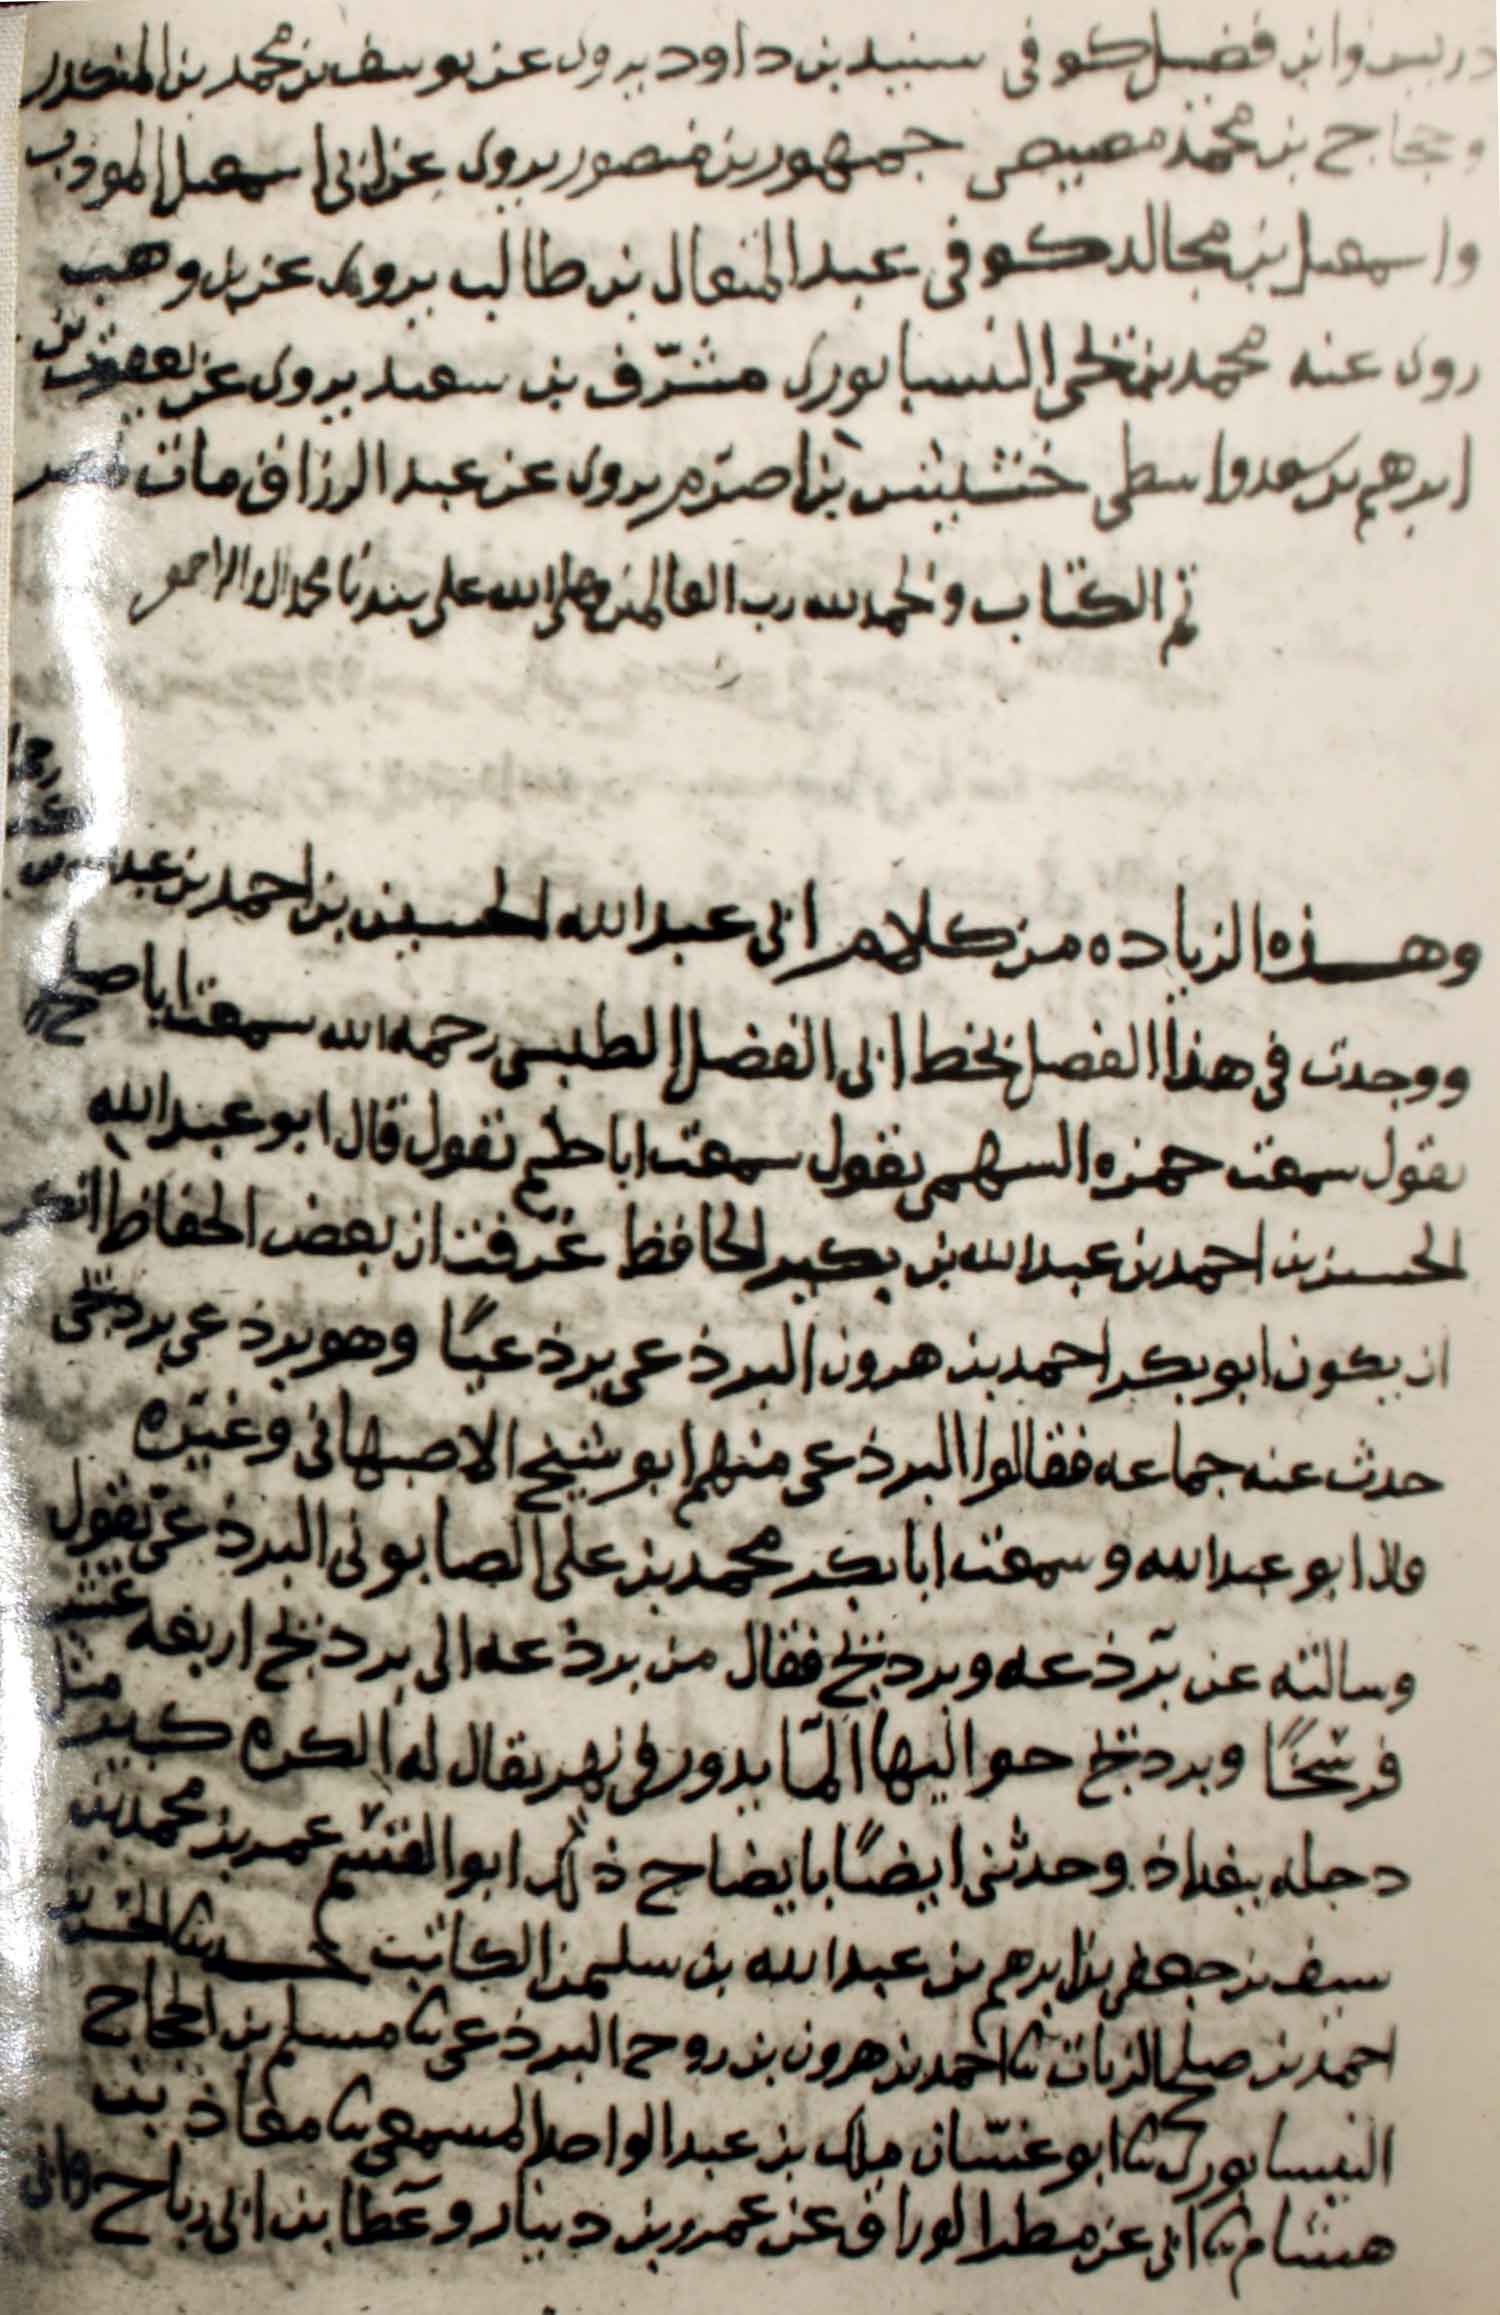 دريس وابن فضيل كوفي سنيد بن داود يروى عن يوسف بن محمد بن المنكدر
وحجاج بن محمد مصيصي جمهور بن منصور يروى عن ابى اسمعيل المودب
واسمعيل بن مجالد كوفي عبد المتعال بن طالب يروى عن ابن وهب
روى عنه محمد بن يحيى النيسابورى مشرّف بن سعيد يروى عن يعقوب بن
ابرهيم بن سعد واسطى خشيش بن اصرم يروى عن عبد الرزاق مات بمصر
تم الكتاب والحمد لله رب العالمين وصلى الله على سيدنا محمد
وهذه الزياده من كلام ابى عبد الله الحسين بن احمد بن عبد
ووجدت في هذا الفصل بخط ابى الفضل الطبسى رحمه الله سمعت ابا صلح
يقول سمعت حمزه السهمى يقول سمعت ابا يقول قال ابو عبد الله
الحسين بن احمد بن عبد الله بن بكير الحافظ عرفت ان بعض الحفاظ انكر
ان يكون ابو بكر احمد بن هرون البرذعى برذعيًا وهو برذعى برديجى
حدث عنه جماعه فقالوا البرذعى منهم ابو شيخ الاصبهانى وغيره
قال ابو عبد الله وسمعت ابا بكر محمد بن على الصابونى البرذعى يقول
وسالته عن برذعه وبرديج فقال من برذعه الى برديج اربعه عشر
فرسخًا وبرديج حواليها المآ يدور في نهر يقال له الكره كبير مثل
دجله ببغداذ وحدثنى ايضًا بايضاح ذلك ابو القسم عمر بن محمد بن
سيف بن جعفر بن ابرهيم بن عبد الله بن سليمن الكاتب الحسن بن
احمد بن صلح الزيات ثنا احمد بن هرون بن روح البرذعى ثنا مسلم بن الحجاج
النيسابورى ثنا ابو غسّان ملك بن عبد الواحد المسمعى ثنا معاذ بن
هشام ثنا ابى عن مطر الوراق عن عمرو بن دينار وعطا بن ابى رباح وابى